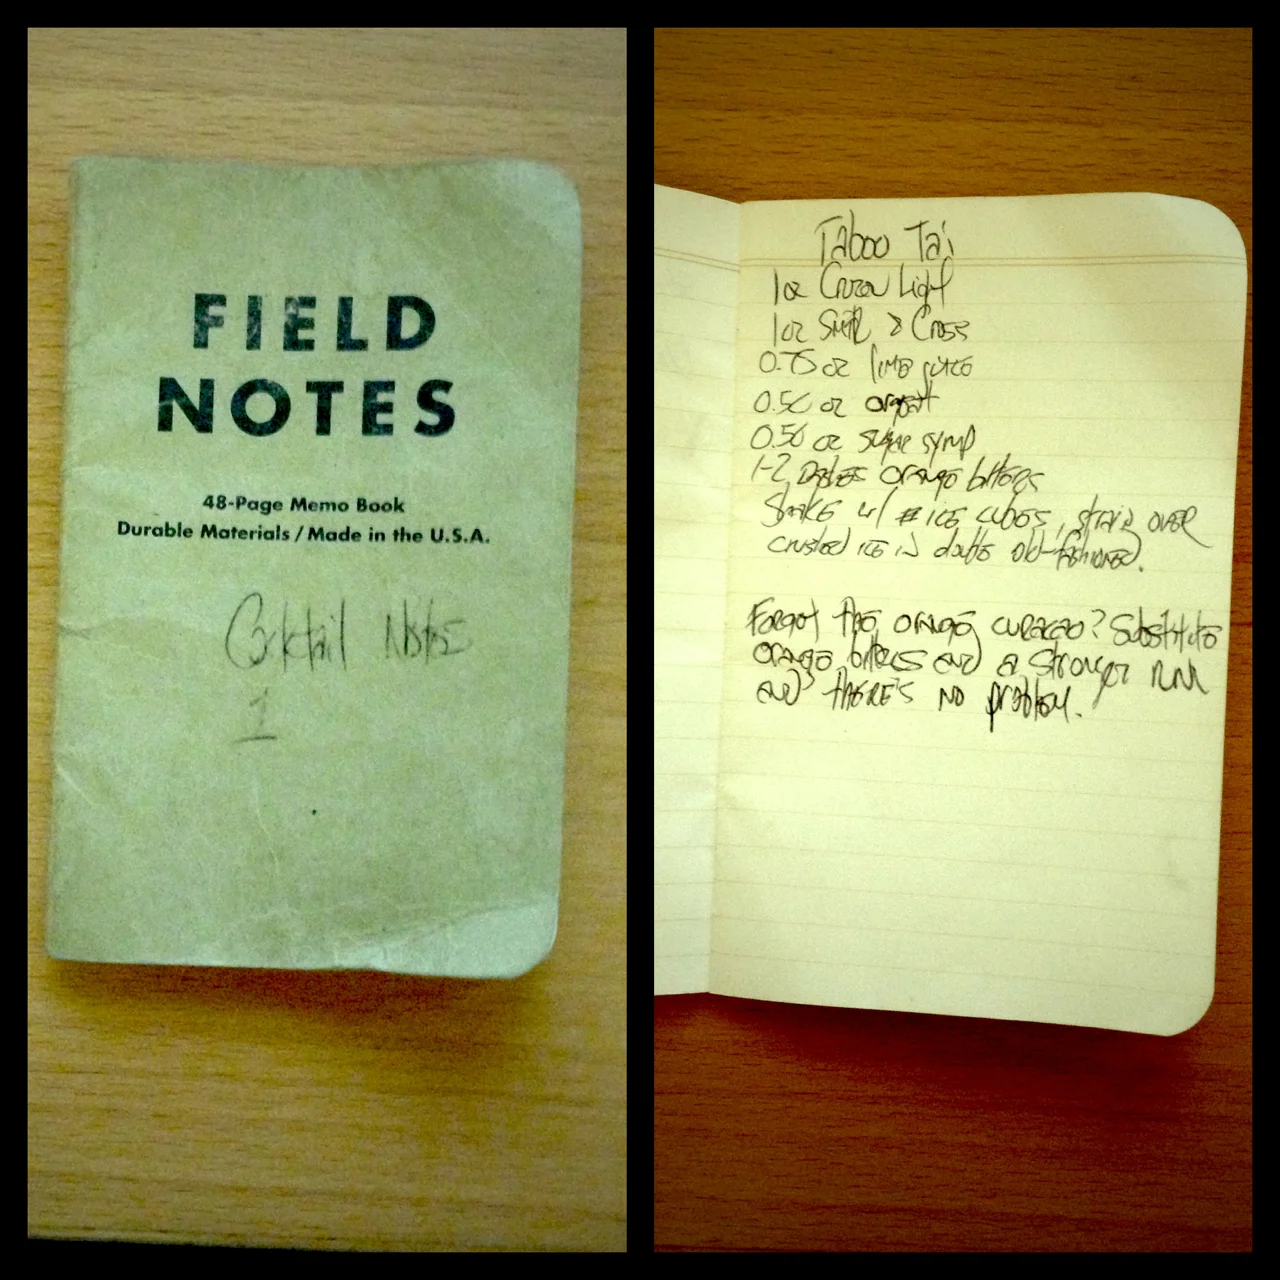 FIELD
NOTES
48-Page Memo Book
Durable Materials / Made in the U.S.A.
Cocktail Notes
1
Taboo Tai
1 oz Cruzan Light
1 oz Smith & Cross
0.75 oz lime juice
0.50 oz orgeat
0.50 oz sugar syrup
1-2 dashes orange bitters
Shake w/ ice cubes, strain over
crushed ice in double old-fashioned.
Forgot the orange curacao? Substitute
orange bitters and a stronger rum
and there's no problem.